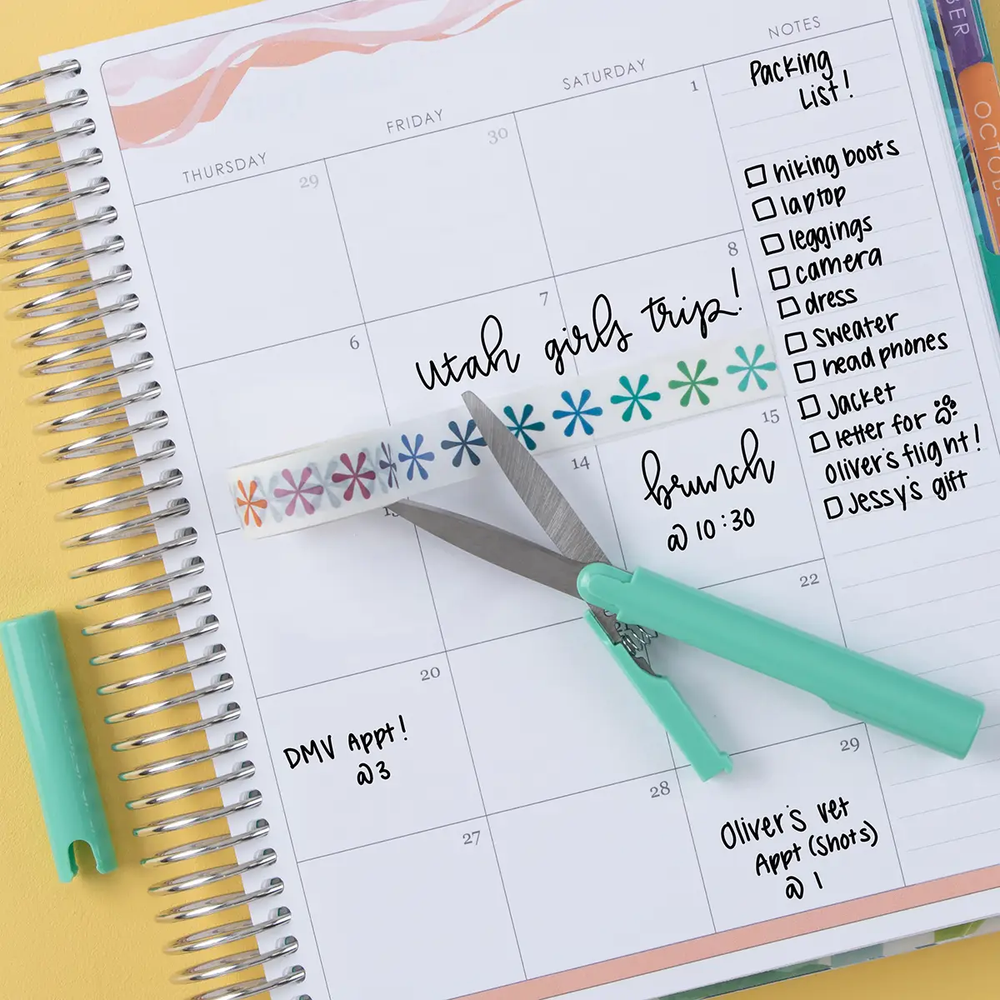 NOTES
SATURDAY
FRIDAY
THURSDAY
29
30
1
6
7
8
Utah girls trip!
14
15
brunch
@ 10:30
20
22
DMV Appt!
@3
27
28
29
Oliver's vet
Appt (Shots)
@ 1
Packing
List!
hiking boots
laptop
leggings
camera
dress
sweater
headphones
Jacket
letter for
Oliver's flight!
Jessy's gift
OCTOBE